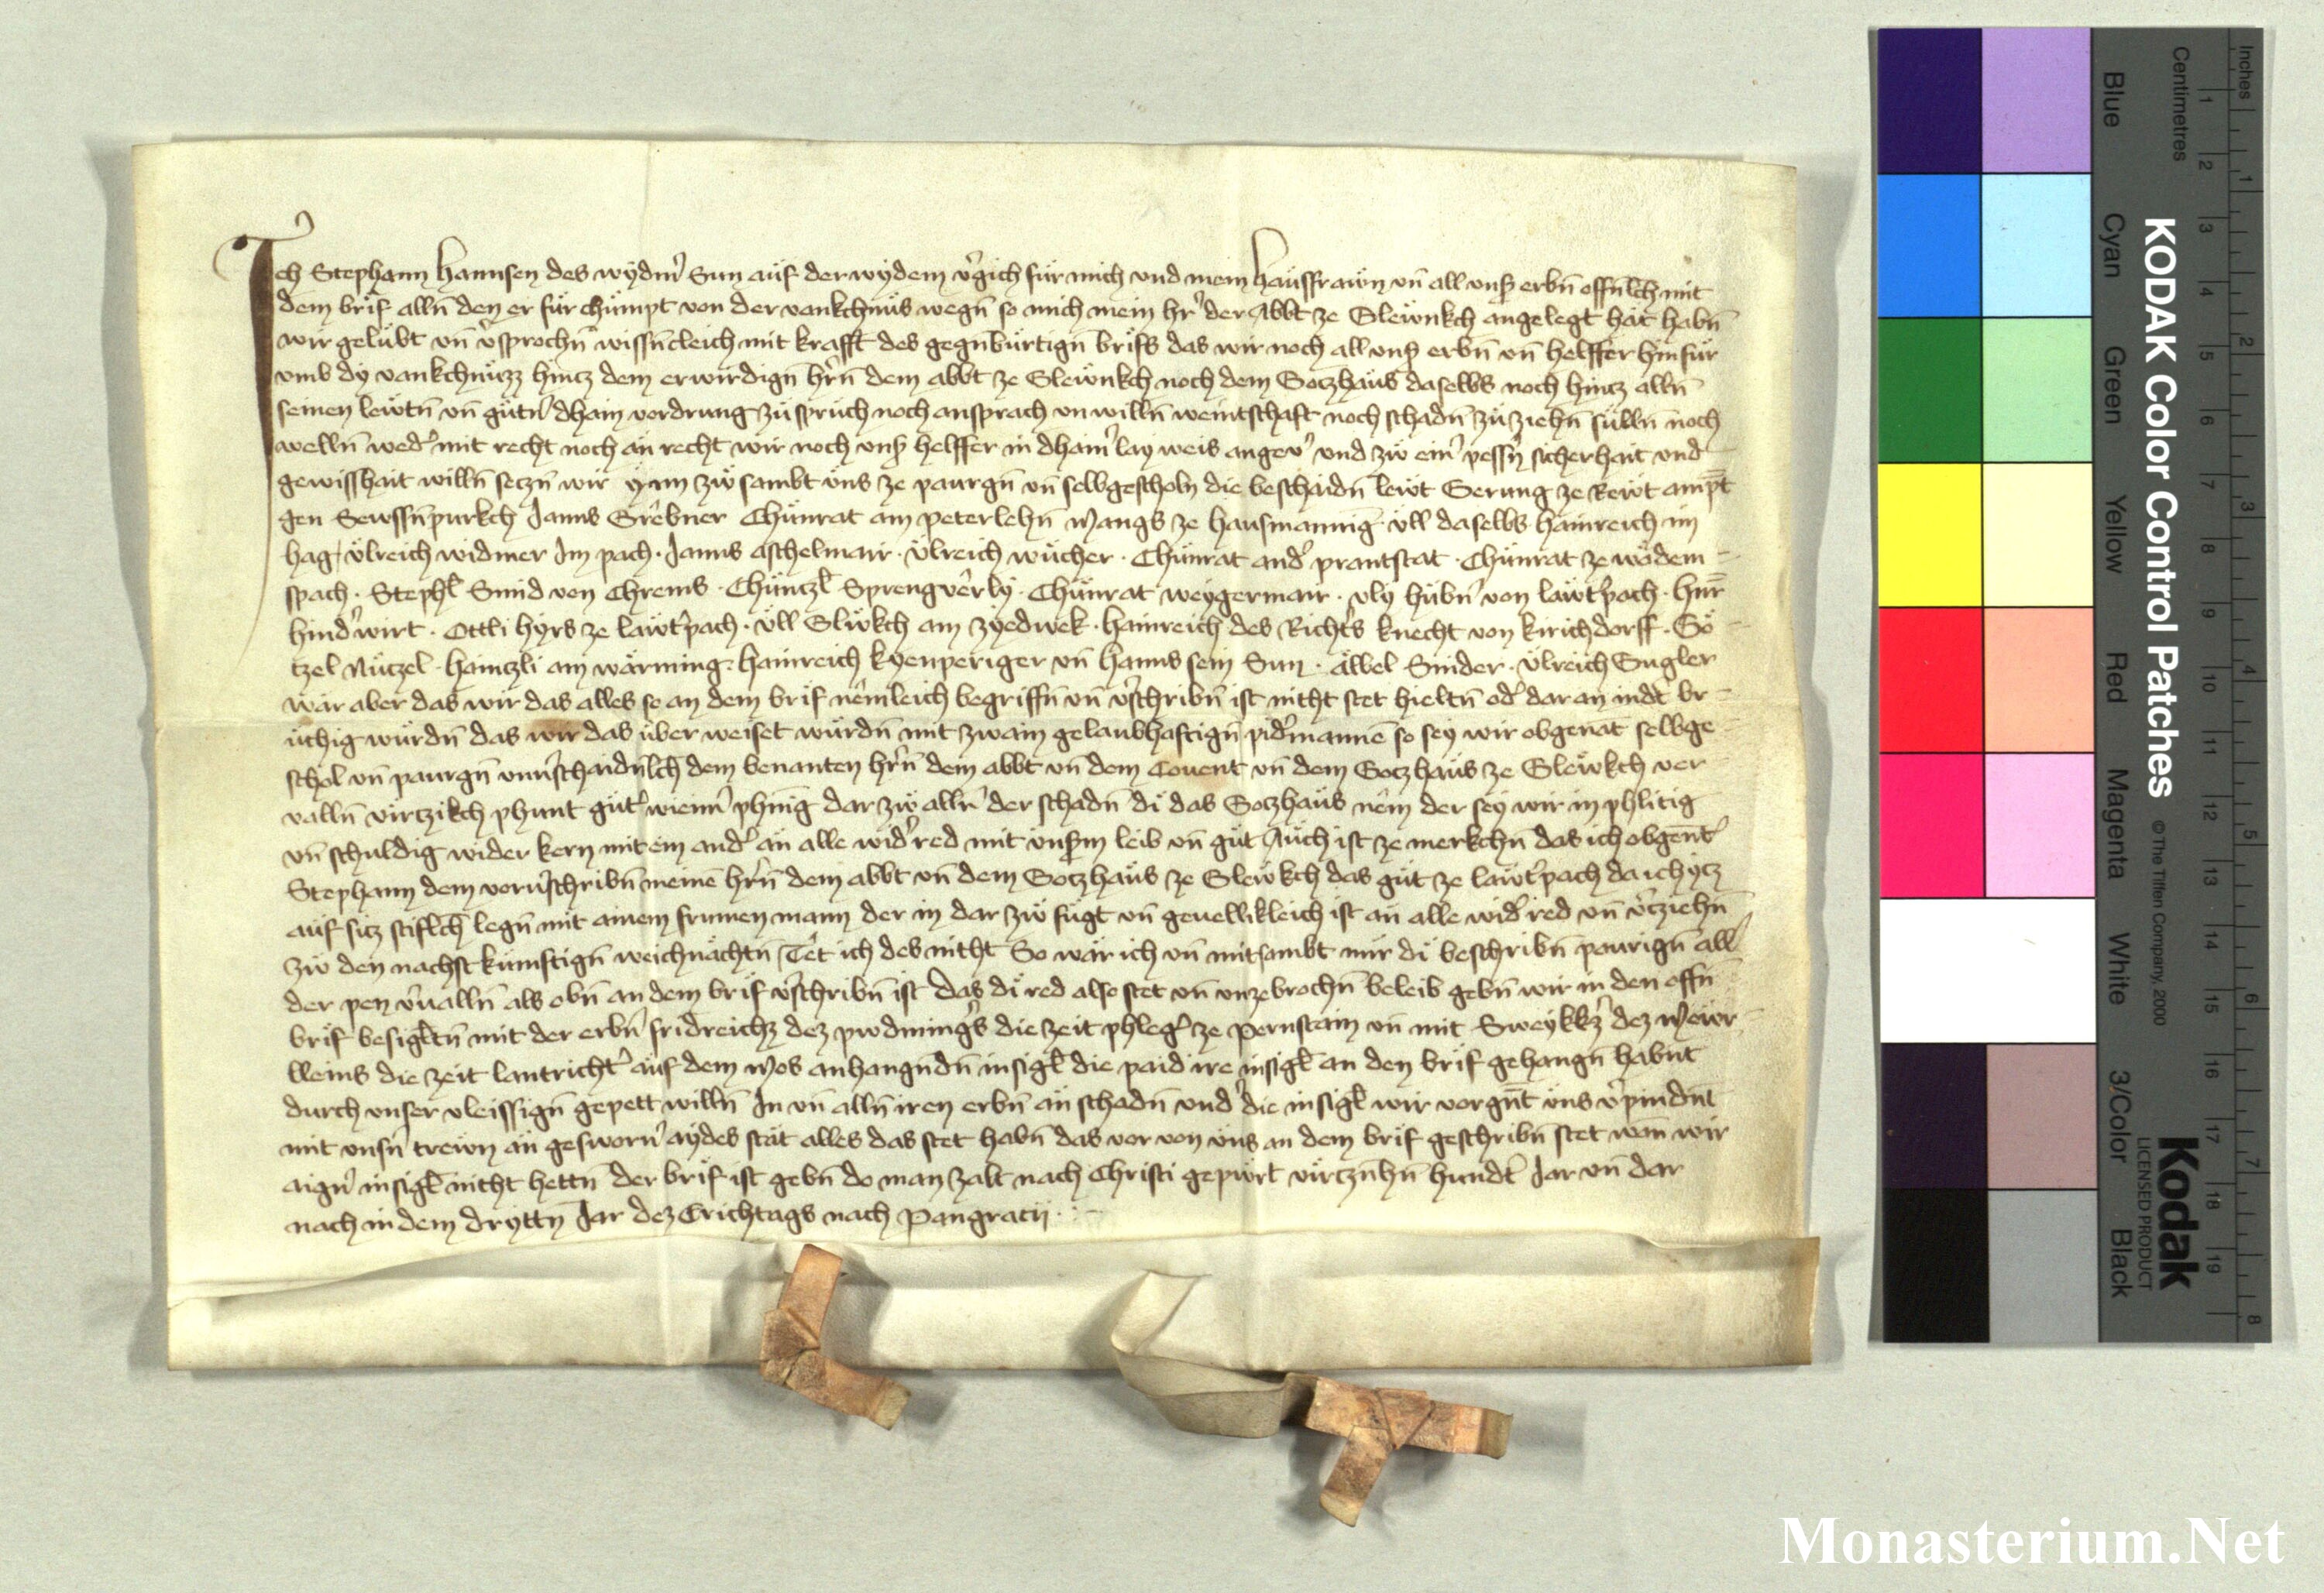 Ich Stephann hannsen des wydmˀ Sun auf der wydem vˀgich für mich und mein haüsfrawn vn̄ all vnsˀ erbn̄ offn̄lch mit
dem brif alln̄ den er für chümpt von der vankchnüs wegn̄ so mich mein hrˀ der Abbt ze Glewnkch angelegt hat habn̄
wir gelübt vn̄ vˀsprochn̄ wissn̄cleich mit krafft des gegnbürtign̄ brifs das wir noch all vnsˀ erbn̄ vn̄ helffer hinfür
vmb dy vankchnüzz hincz dem erwirdign̄ hrˀn̄ dem abbt ze Glewnkch noch dem Goczhaüs daselbs noch hincz alln̄
seinen lewtn̄ vn̄ gütnˀ dhain vordrung züspruch noch ansprach vnwilln̄ weintschaft noch schadn̄ zü ziehn̄ sülln̄ noch
welln̄ wedˀ mit recht noch an recht wir noch vnsˀ helffer in dhainˀ lay weis angevˀ und zw einˀ pessnˀ sicherhait und
gewisshait willn̄ seczn̄ wir ynn zw sambt vns ze paurgn̄ vn̄ selbgescholn die beschaidn̄ lewt Gerung ze Rewt ampt
gen Sewssn̄purkch Janns Grebner Chünrat am peterlehn̄ Mangs ze hausmanniḡ · Vll daselbs hainreich im
hag · vlreich widmer Im pach · Janns aschelmair · Vlreich wücher · Chünrat andˀ prantstat · Chünrat ze wödem
spach · Stephl Smid von Chrems · Chünczl Sprengverly · Chünrat weygermair · vly hübnˀ von lawtˀpach · hnr̄
hindˀwirt · Ottli hyrs ze lawtˀpach · Vll Glwkch am zyedwek · hainreich des Richtˀs knecht von kirichdorff · Gö
tzel Nüczel · hainczli am wärming · hainreich kyenperiger vn̄ hanns sein Sun · Albel Snider · Vlreich Gugler
wär aber das wir das alles so an dem brif nemleich begriffn̄ vn̄ vˀschribn̄ ist nitht stet hieltn̄ odˀ dar an indˀt br
üchig würdn̄ das wir das über weiset würdn̄ mit zwain gelaubhaftign̄ pidˀmannē so sey wir obgenat̄ selbge
schol vn̄ paurgn̄ vnuˀschaidn̄lch̄ dem benanten hrˀn̄ dem abbt vn̄ dem Couent vn̄ dem Goczhaüs ze Glewkch ver
valln̄ virczikch phunt gütˀ wiennˀ phnīg dar zw allnˀ der schadn̄ di das Goczhaüs nem der sey wir in phlitig
vn̄ schuldig wider kern mit ein andˀ an alle widˀred mit vnsˀm leib vn̄ güt Auch ist ze merkchn̄ das ich obgen̄tˀ
Stephann dem vorvˀschribn̄ meinē hrˀn̄ dem abbt vn̄ dem Goczhaüs ze Glewkch das güt ze lawtˀpach da ich ycz
auf sicz stiflch̄ legn̄ mit ainem frumen mann der in dar zw fügt vn̄ geuellikleich ist an alle widˀred vn̄ vˀcziehn̄
zw den nachstkünftign̄ weichnachtn̄ Tet ich des nitht So wär ich vn̄ mitsambt mir di beschribn̄ paurign̄ all
der pen vˀualln̄ als obn̄ an dem brif vˀschribn̄ ist Das di red also stet vn̄ vnzebrochn̄ beleib gebn̄ wir in den offn̄
brif besigltn̄ mit der erbnˀ fridreichz dez prodmingˀs die zeit phlegˀ ze pernstain vn̄ mit Sweykkˀz dez Mewr
lleins die zeit lantrichtˀ auf dem Mos anhangundn̄ insigl̄ die paid ire insigl̄ an den brif gehangn̄ habnt
durch vnser vleissign̄ gepett willn̄ In vn̄ alln̄ iren erbn̄ an schadn̄ und die insigl̄ wir vorgn̄t vns vˀpindn̄t
mit vnsn̄ trewn an gesworn̄ aydes stat alles das stet habn̄ das vor von vns an dem brif geschribn̄ stet wan̄ wir
aignˀ insigl̄ nitht hettn̄ der brif ist gebn̄ do man zalt nach Christi gepürt virczehn̄ hundˀt Jar vn̄ dar
nach in dem drytty Jar dez Erichtags nach Pangratii · : ~
Inches
Centimetres
KODAK Color Control Patches
© The Tiffen Company, 2000
Kodak
LICENSED PRODUCT
Blue
Cyan
Green
Yellow
Red
Magenta
White
3/Color
Black
1 2 3 4 5 6 7 8 9 10 11 12 13 14 15 16 17 18 19
1 2 3 4 5 6 7 8
Monasterium.Net